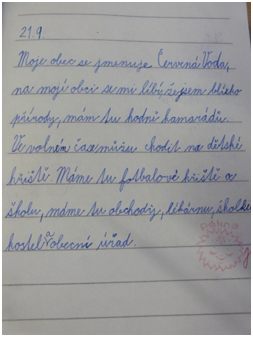 21.9.
Moje obec se jmenuje Červená Voda,
na mojí obci se mi líbý, že jsem blísko
přírody, mám tu hodně kamarádů.
Ve volném čase můžu chodit na dětské
hřiště. Máme tu fotbalové hřiště a
školu, máme tu obchody, lékárnu, školku
kostel obecní úřad.